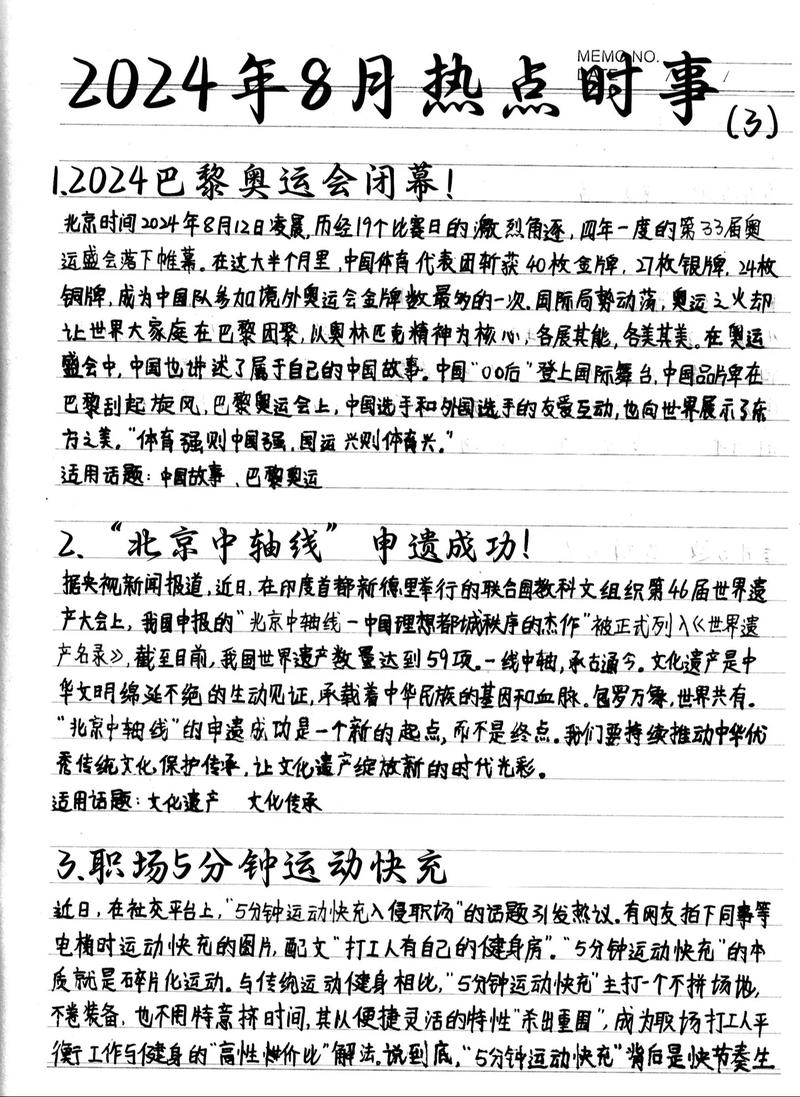 MEMO NO.
2024年8月热点时事
(3)
1.2024巴黎奥运会闭幕!
北京时间2024年8月12日凌晨,历经19个比赛日的激烈角逐,四年一度的第33届奥
运盛会落下帷幕。在这大半个月里,中国体育代表团斩获40枚金牌,27枚银牌,24枚
铜牌,成为中国队参加境外奥运会金牌数最多的一次.国际局势动荡,奥运之火却
让世界大家庭在巴黎团聚,以奥林匹克精神为核心,各展其能,各美其美。在奥运
盛会中,中国也讲述了属于自己的中国故事。中国“00后”登上国际舞台,中国品牌在
巴黎刮起旋风,巴黎奥运会上,中国选手和外国选手的友爱互动,也向世界展示了东
方之美。“体育强则中国强,国运兴则体育兴。”
适用话题:中国故事、巴黎奥运
2、“北京中轴线”申遗成功!
据央视新闻报道,近日,在印度首都新德里举行的联合国教科文组织第46届世界遗
产大会上,我国申报的“北京中轴线-中国理想都城秩序的杰作”被正式列入《世界遗
产名录》,截至目前,我国世界遗产数量达到59项。一线中轴,承古通今。文化遗产是中
华文明绵延不绝的生动见证,承载着中华民族的基因和血脉。包罗万象,世界共有。
“北京中轴线”的申遗成功是一个新的起点,而不是终点。我们要持续推动中华优
秀传统文化保护传承,让文化遗产绽放新的时代光彩。
适用话题:文化遗产 文化传承
3、职场5分钟运动快充
近日,在社交平台上,“5分钟运动快充入侵职场”的话题引发热议。有网友拍下同事等
电梯时运动快充的图片,配文“打工人有自己的健身房”。“5分钟运动快充”的本
质就是碎片化运动。与传统运动健身相比,“5分钟运动快充”主打一个不拼场地,
不卷装备,也不用特意挤时间,其以便捷灵活的特性“杀出重围”,成为职场打工人平
衡工作与健身的“高性价比”解法。说到底,“5分钟运动快充”背后是快节奏生